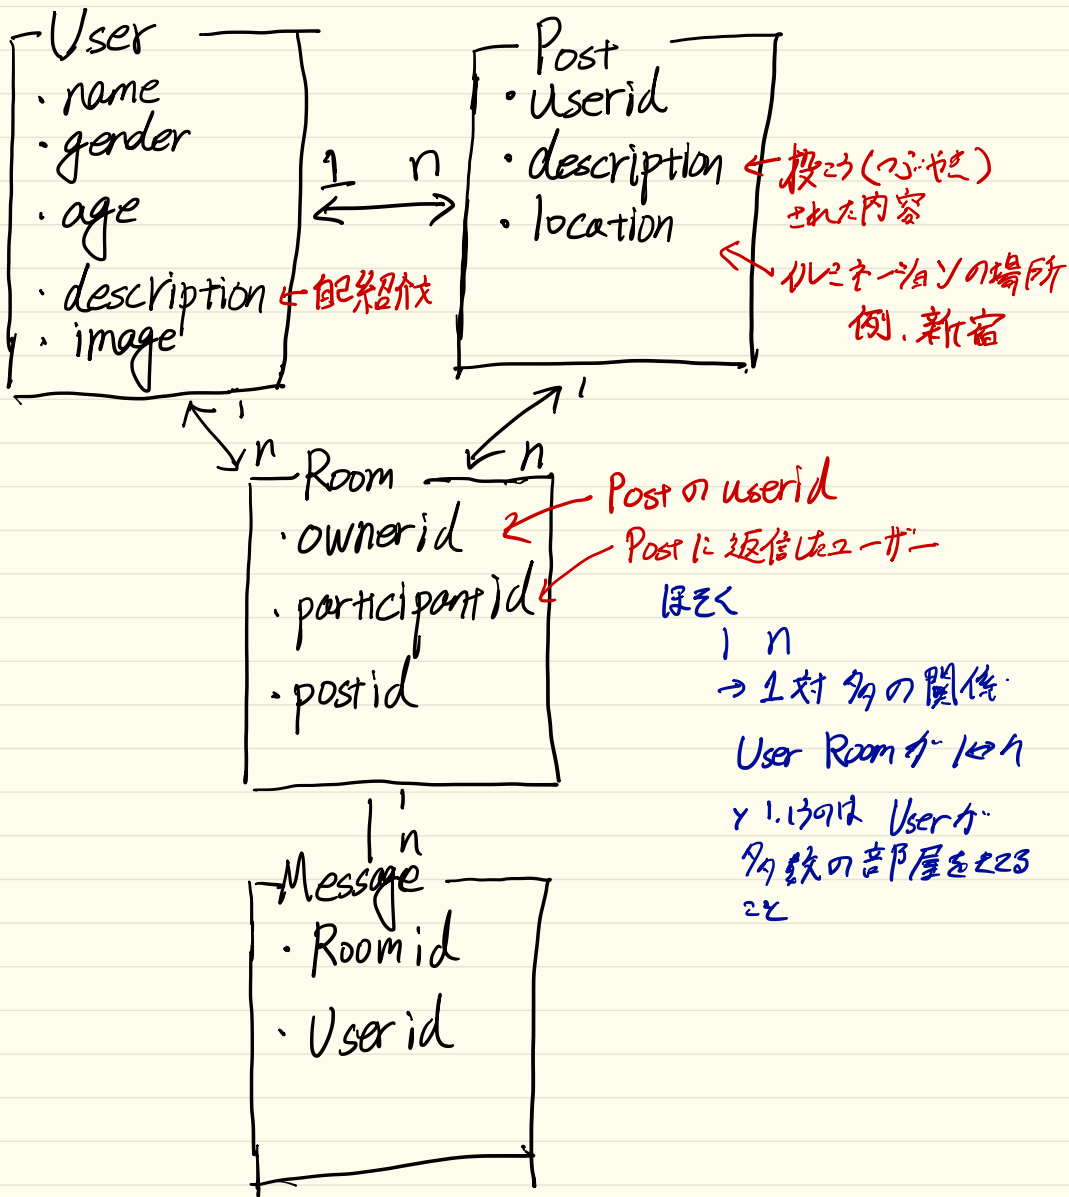 User
・name
・gender
・age
・description ← 自己紹介
・image
1 n
Post
・userid
・description ← 投こう(つぶやき)
された内容
・location
イルミネーションの場所
例.新宿
1
n
1
n
Room
・ownerid
Postのuserid
・participantid
Postに返信したユーザー
・postid
ほそく
1 n
→ 1対多の関係.
User Roomが 1↔n
Userが
多数の部屋をもてる
こと
1
n
Message
・Roomid
・Userid